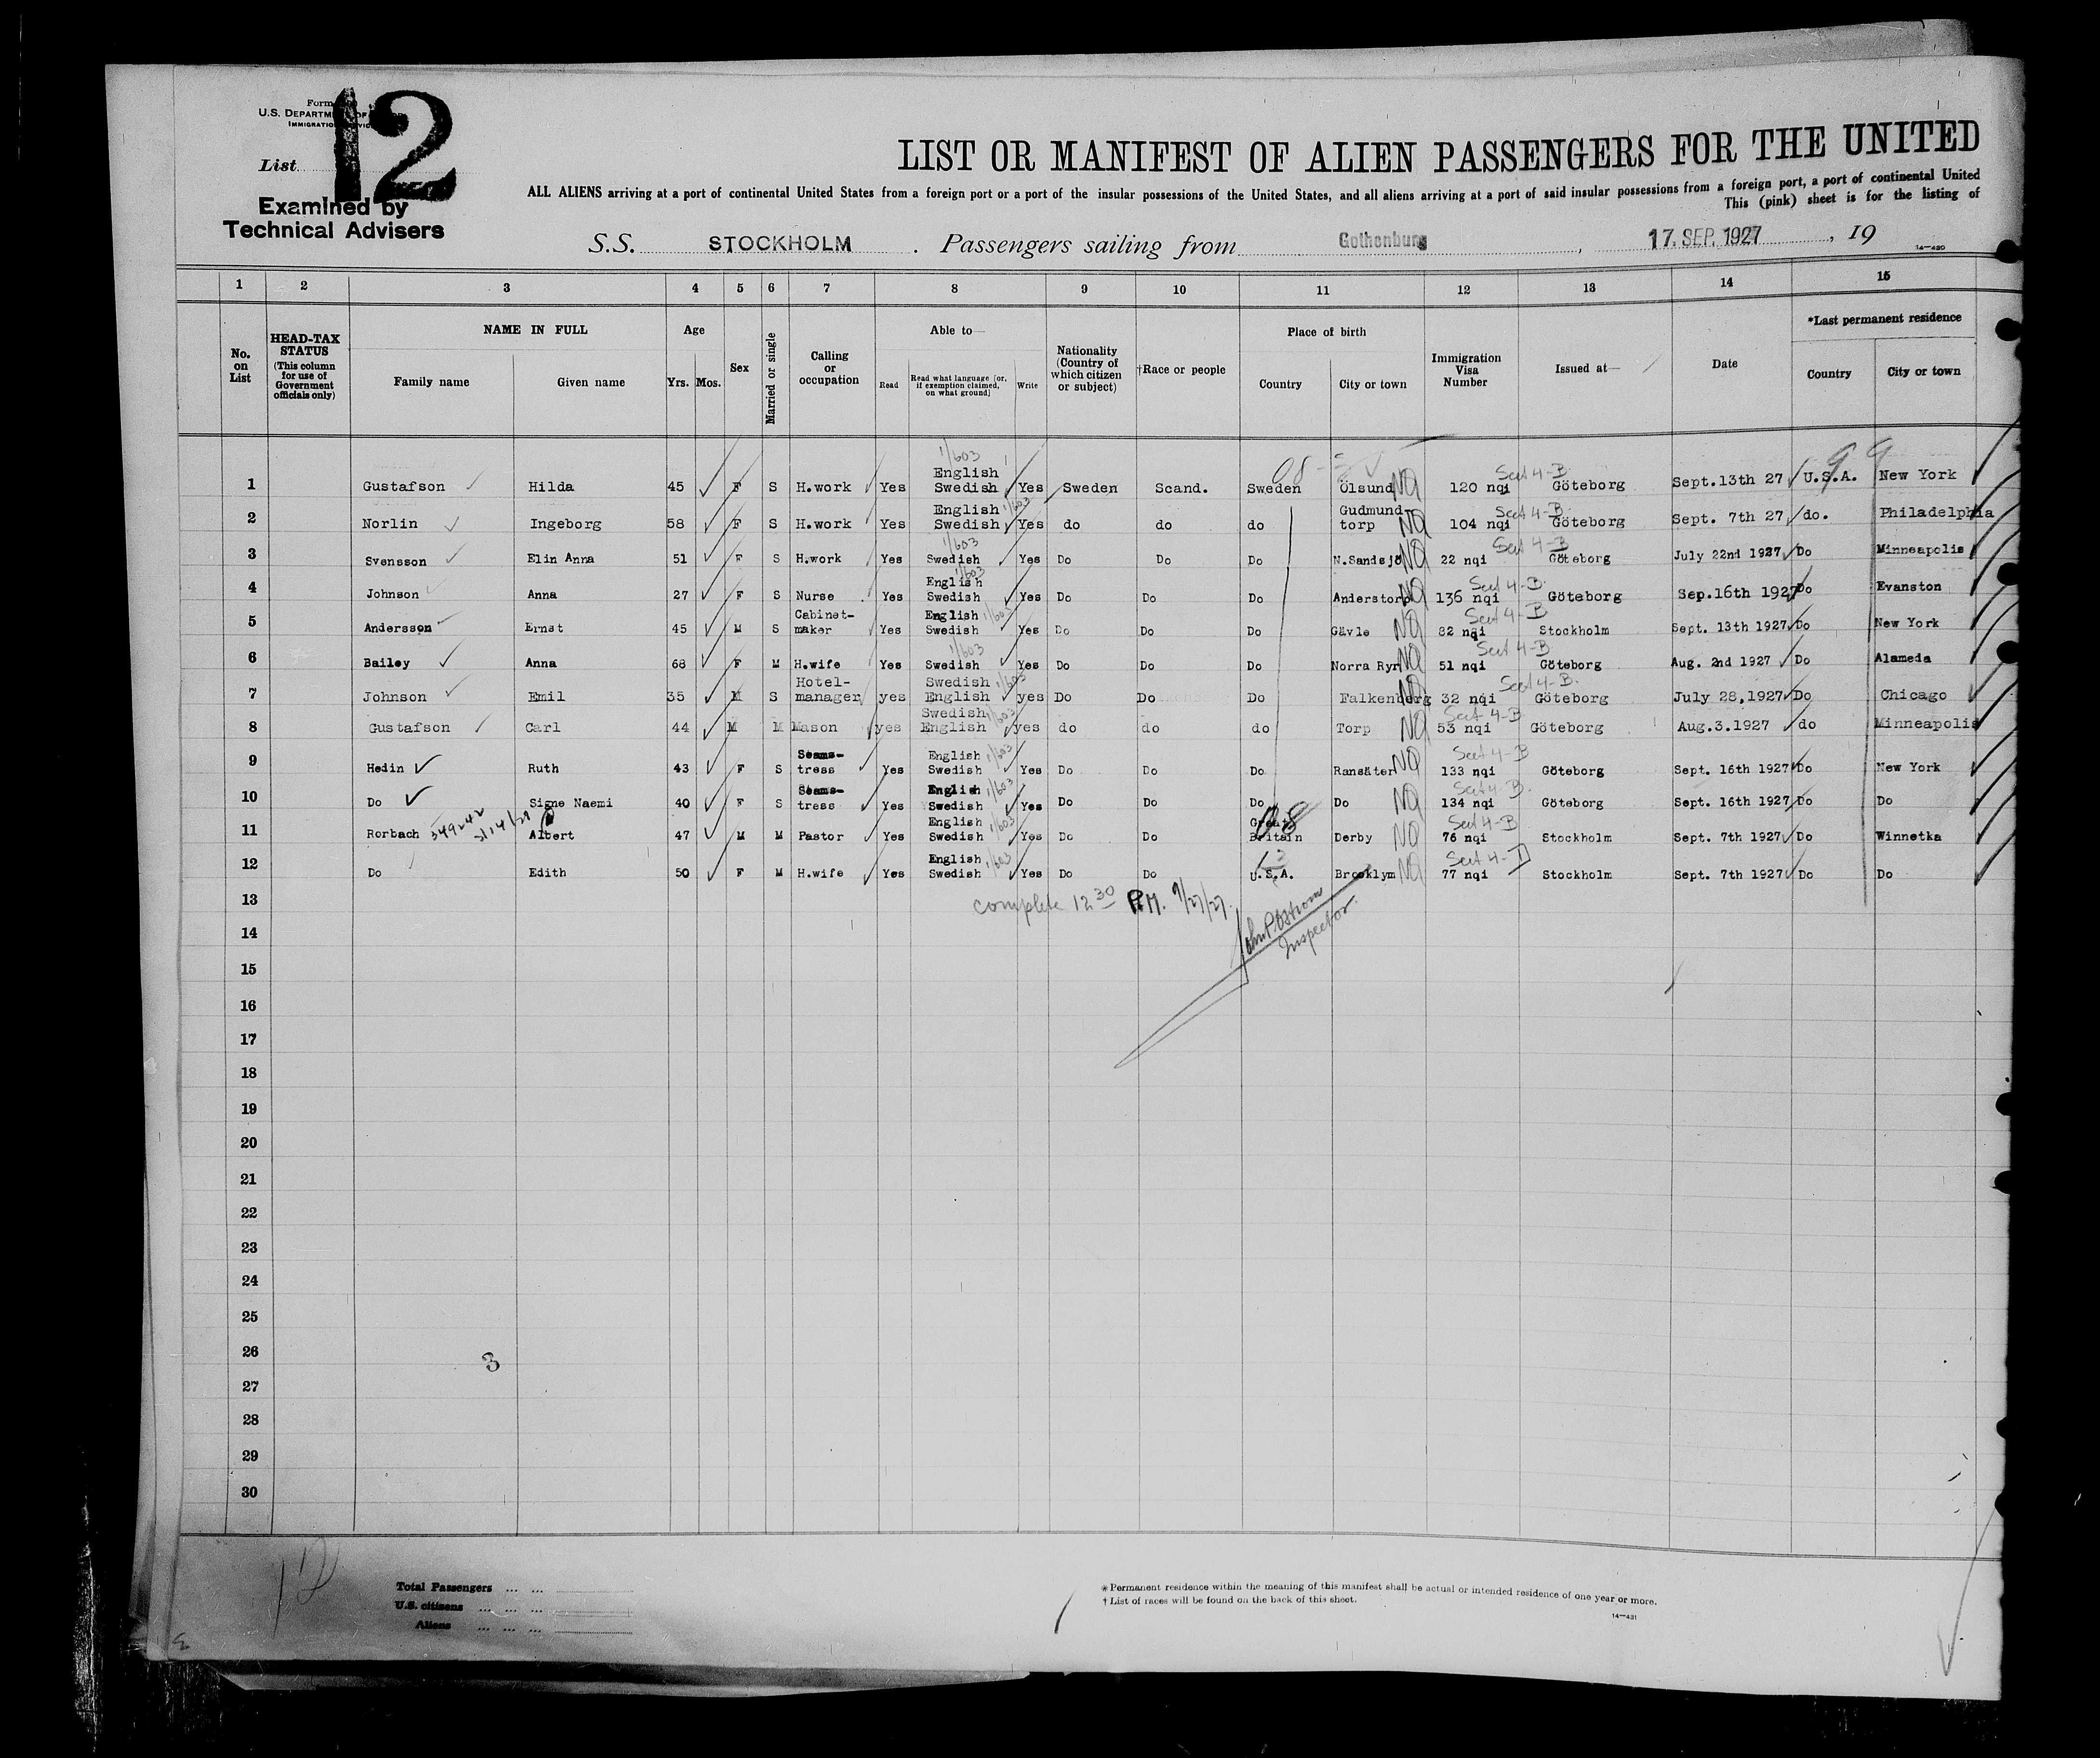 Form
U.S. DEPARTM OF
IMMIGRATION
12
List
Examined by
Technical Advisers
LIST OR MANIFEST OF ALIEN PASSENGERS FOR THE UNITED
ALL ALIENS arriving at a port of continental United States from a foreign port or a port of the insular possessions of the United States, and all aliens arriving at a port of said insular possessions from a foreign port, a port of continental United
This (pink) sheet is for the listing of
S.S. STOCKHOLM . Passengers sailing from Gothenburg , 17. SEP. 1927 , 19
14—430
1 2 3 4 5 6 7 8 9 10 11 12 13 14 15
No. on List
HEAD-TAX STATUS (This column for use of Government officials only)
NAME IN FULL
Family name Given name
Age
Yrs. Mos.
Sex
Married or single
Calling or occupation
Able to—
Read Read what language [or, if exemption claimed, on what ground] Write
Nationality (Country of which citizen or subject)
†Race or people
Place of birth
Country City or town
Immigration Visa Number
Issued at—
Date
*Last permanent residence
Country City or town
1 Gustafson Hilda 45 F S H.work Yes English Swedish 1/603 Yes Sweden Scand. Sweden Ölsund NQ 120 nqi Sect 4-B Göteborg Sept.13th 27 U.S.A. New York
2 Norlin Ingeborg 58 F S H.work Yes English Swedish 1/603 Yes do do do Gudmundtorp NQ 104 nqi Sect 4-B Göteborg Sept. 7th 27 do. Philadelphia
3 Svensson Elin Anna 51 F S H.work Yes Swedish 1/603 Yes Do Do Do N.Sandsjö NQ 22 nqi Sect 4-B Göteborg July 22nd 1927 Do Minneapolis
4 Johnson Anna 27 F S Nurse Yes English Swedish 1/603 Yes Do Do Do Anderstorp NQ 136 nqi Sect 4-B Göteborg Sep.16th 1927 Do Evanston
5 Andersson Ernst 45 M S Cabinet-maker Yes English Swedish 1/603 Yes Do Do Do Gävle NQ 82 nqi Sect 4-B Stockholm Sept. 13th 1927 Do New York
6 Bailey Anna 68 F M H.wife Yes Swedish 1/603 Yes Do Do Do Norra Ryr NQ 51 nqi Sect 4-B Göteborg Aug. 2nd 1927 Do Alameda
7 Johnson Emil 35 M S Hotel-manager yes Swedish English 1/603 yes Do Do Do Falkenberg NQ 32 nqi Sect 4-B. Göteborg July 28,1927 Do Chicago
8 Gustafson Carl 44 M M Mason yes Swedish English 1/603 yes do do do Torp NQ 53 nqi Sect 4-B Göteborg Aug.3.1927 do Minneapolis
9 Hedin Ruth 43 F S Seams-tress Yes English Swedish 1/603 Yes Do Do Do Ransäter NQ 133 nqi Sect 4-B Göteborg Sept. 16th 1927 Do New York
10 Do Signe Naemi 40 F S Seams-tress Yes English Swedish 1/603 Yes Do Do Do Do NQ 134 nqi Sect 4-B. Göteborg Sept. 16th 1927 Do Do
11 Rorbach 349242 3/14/29 Albert 47 M M Pastor Yes English Swedish 1/603 Yes Do Do Great Britain 08 Derby NQ 76 nqi Sect 4-B Stockholm Sept. 7th 1927 Do Winnetka
12 Do Edith 50 F M H.wife Yes English Swedish 1/603 Yes Do Do U.S.A. Brooklym NQ 77 nqi Sect 4-D Stockholm Sept. 7th 1927 Do Do
13
complete 12 30 P.M. 9/27/27.
John P Ostrom
Inspector.
14
15
16
17
18
19
20
21
22
23
24
25
26
3
27
28
29
30
12
Total Passengers ... ...
U.S. citizens ... ... ...
Aliens ... ... ...
* Permanent residence within the meaning of this manifest shall be actual or intended residence of one year or more.
† List of races will be found on the back of this sheet.
14—431